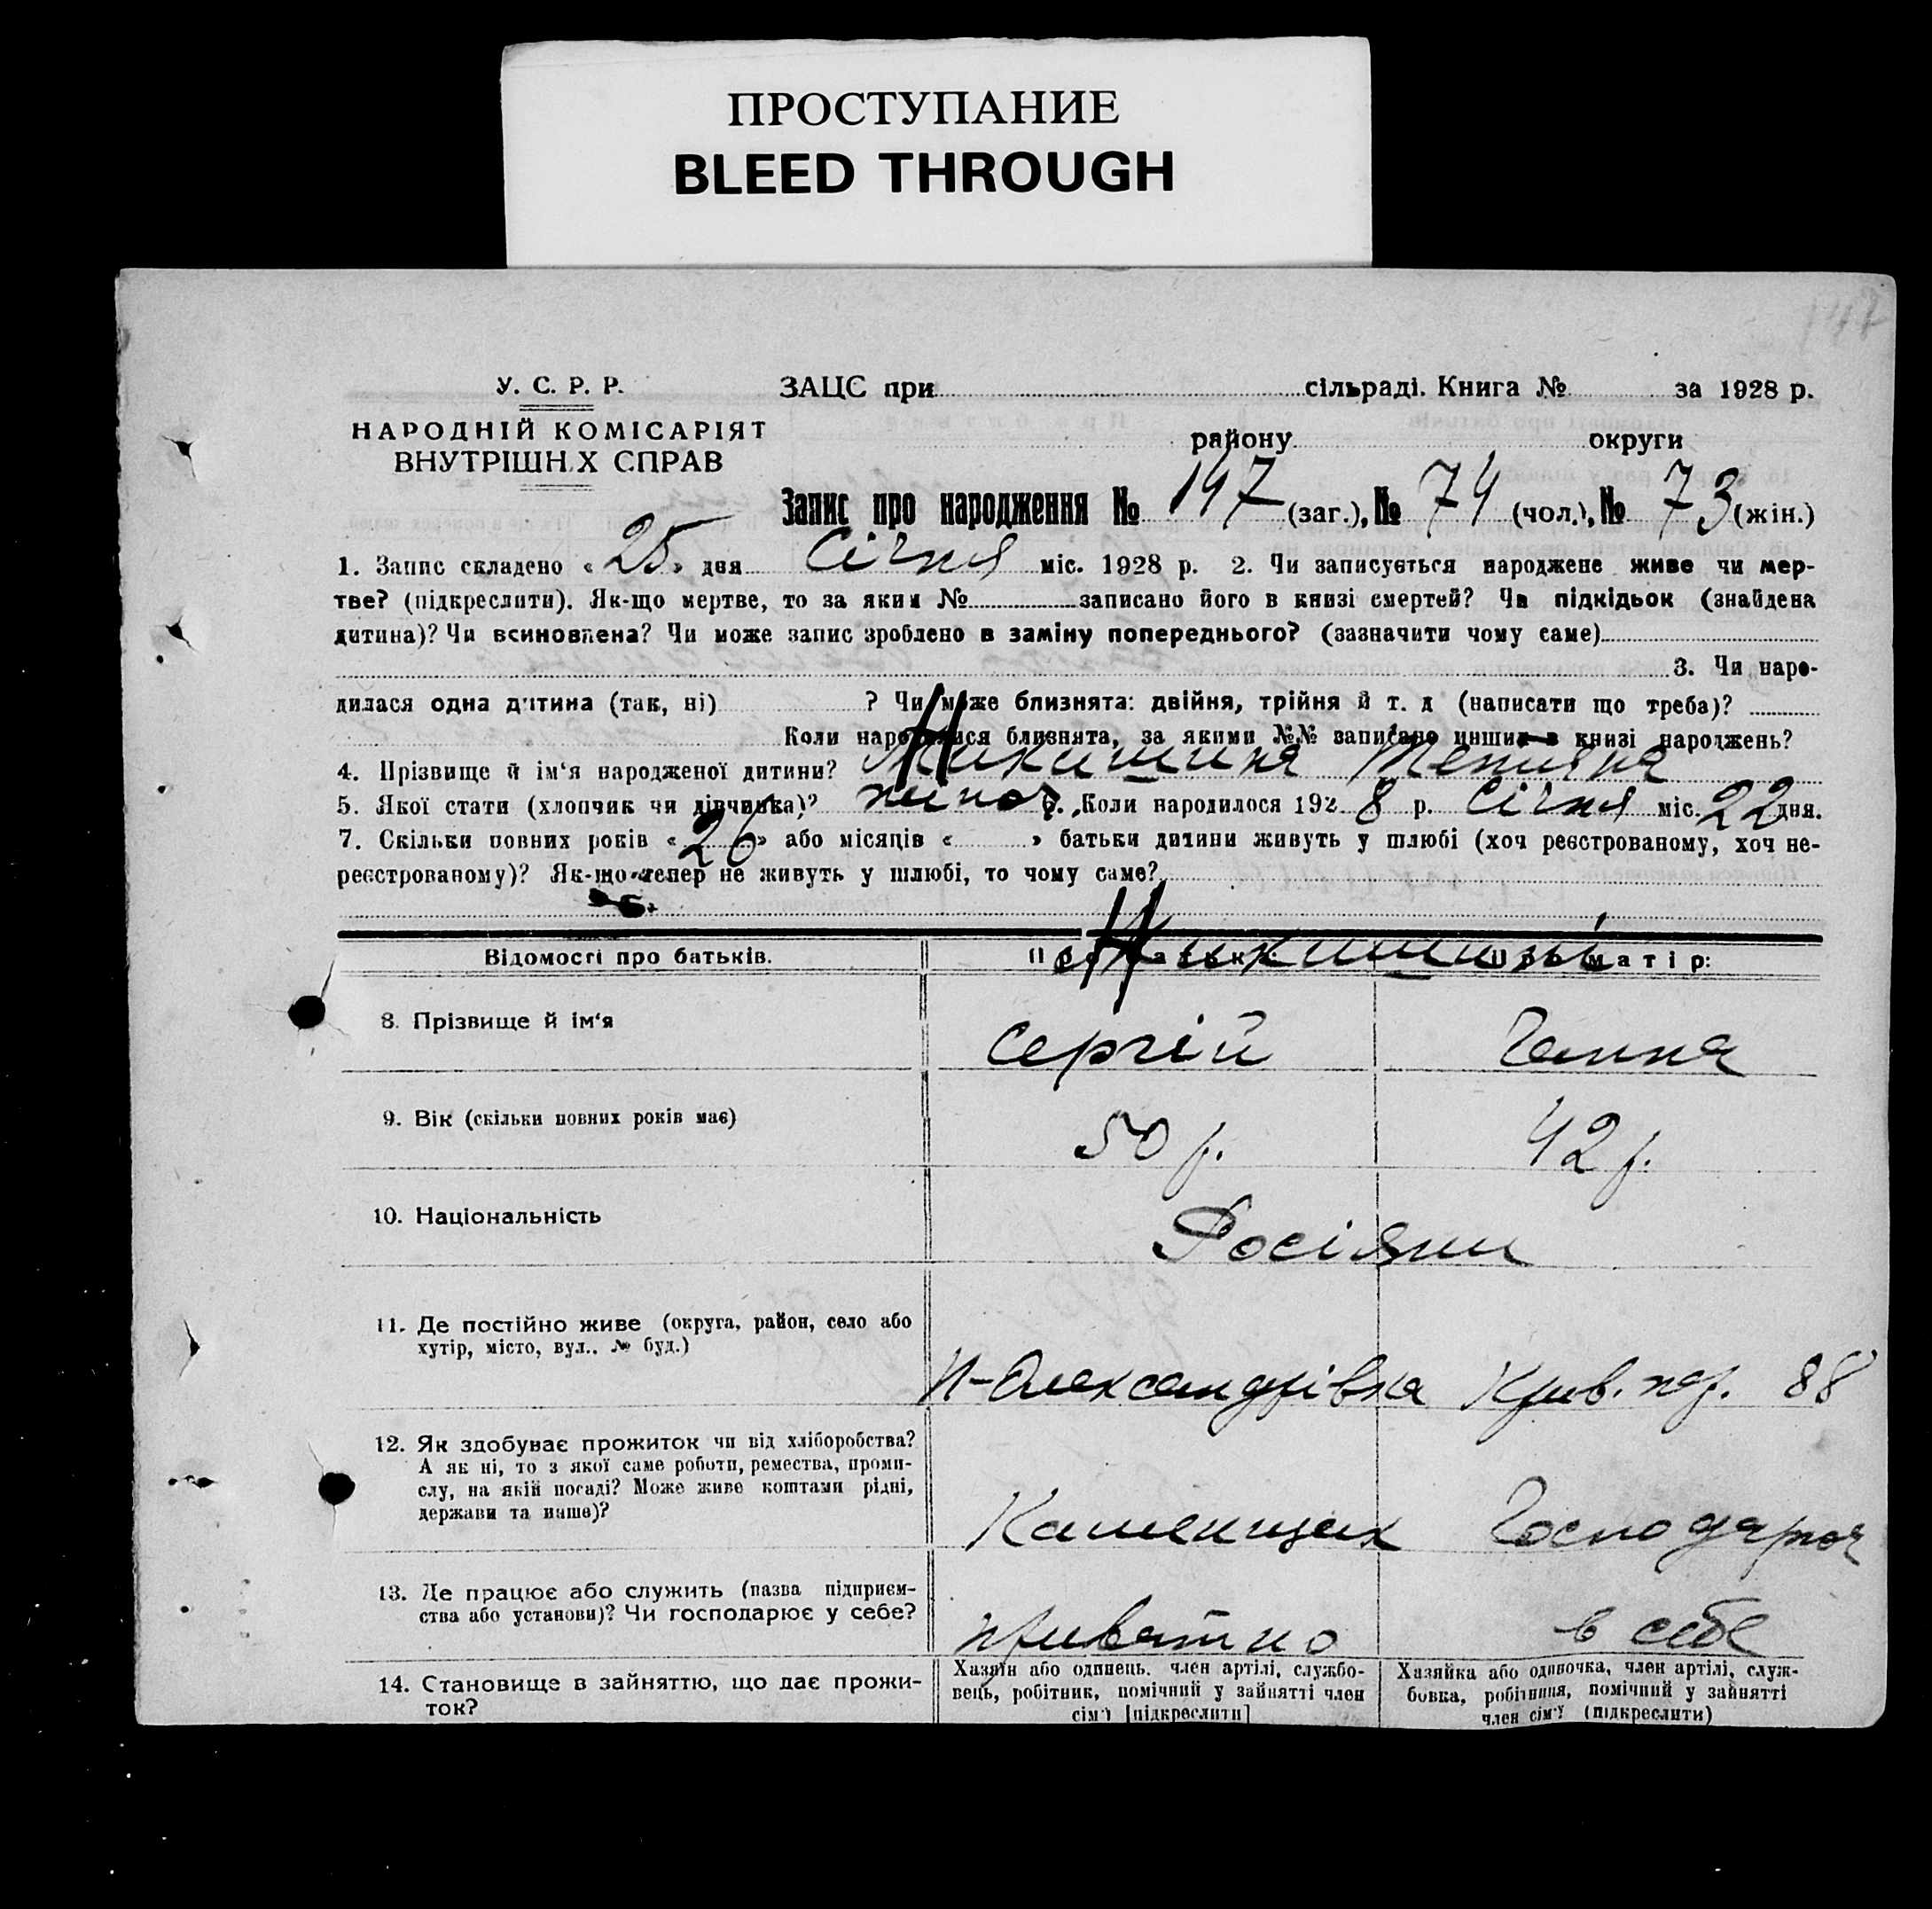 ПРОСТУПАНИЕ
BLEED THROUGH
147
У. С. Р. Р.
ЗАЦС при сільраді. Книга № за 1928 р.
НАРОДНІЙ КОМІСАРІЯТ
ВНУТРІШН.Х СПРАВ
району округи
Запис про народження № 147 (заг.), № 74 (чол.), № 73 (жін.)
1. Запис складено « 25 » дня Січня міс. 1928 р. 2. Чи записується народжене живе чи мер-
тве? (підкреслити). Як-що мертве, то за яким № записано його в книзі смертей? Чи підкідьок (знайдена
дитина)? Чи всиновлена? Чи може запис зроблено в заміну попереднього? (зазначити чому саме)
3. Чи наро-
дилася одна дитина (так, ні) ? Чи може близнята: двійня, трійня й т. д (написати що треба)?
Коли народилися близнята, за якими №№ записано инших в книзі народжень?
4. Прізвище й ім‘я народженої дитини? Никишина Тетяна
5. Якої стати (хлопчик чи дівчинка)? жіноч 6. Коли народилося 192 8 р. Січня міс. 22 дня.
7. Скільки повних років « 26 » або місяців « » батьки дитини живуть у шлюбі (хоч реєстрованому, хоч не-
реєстрованому)? Як-що тепер не живуть у шлюбі, то чому саме?
Відомості про батьків. Про батька: Про матір:
Никишини
8. Прізвище й ім‘я Сергій Ганна
9. Вік (скільки повних років має) 50 р. 42 р.
10. Національність Росіяни
11. Де постійно живе (округа, район, село або
хутір, місто, вул.. № буд.)
Н-Олександрівка Крив. пер. 88
12. Як здобуває прожиток чи від хліборобства?
А як ні, то з якої саме роботи, ремества, проми-
слу, на якій посаді? Може живе коштами рідні,
держави та инше)?
Каменщик Господароч
13. Де працює або служить (назва підприєм-
ства або установи)? Чи господарює у себе?
приватно в себе
14. Становище в зайняттю, що дає прожи-
ток?
Хазяїн або одинець. член артілі, службо-
вець, робітник, помічний у зайнятті член
сім'ї [підкреслити]
Хазяйка або одиночка, член артілі, служ-
бовка, робітниця, помічний у зайнятті
член сім'ї (підкреслити)